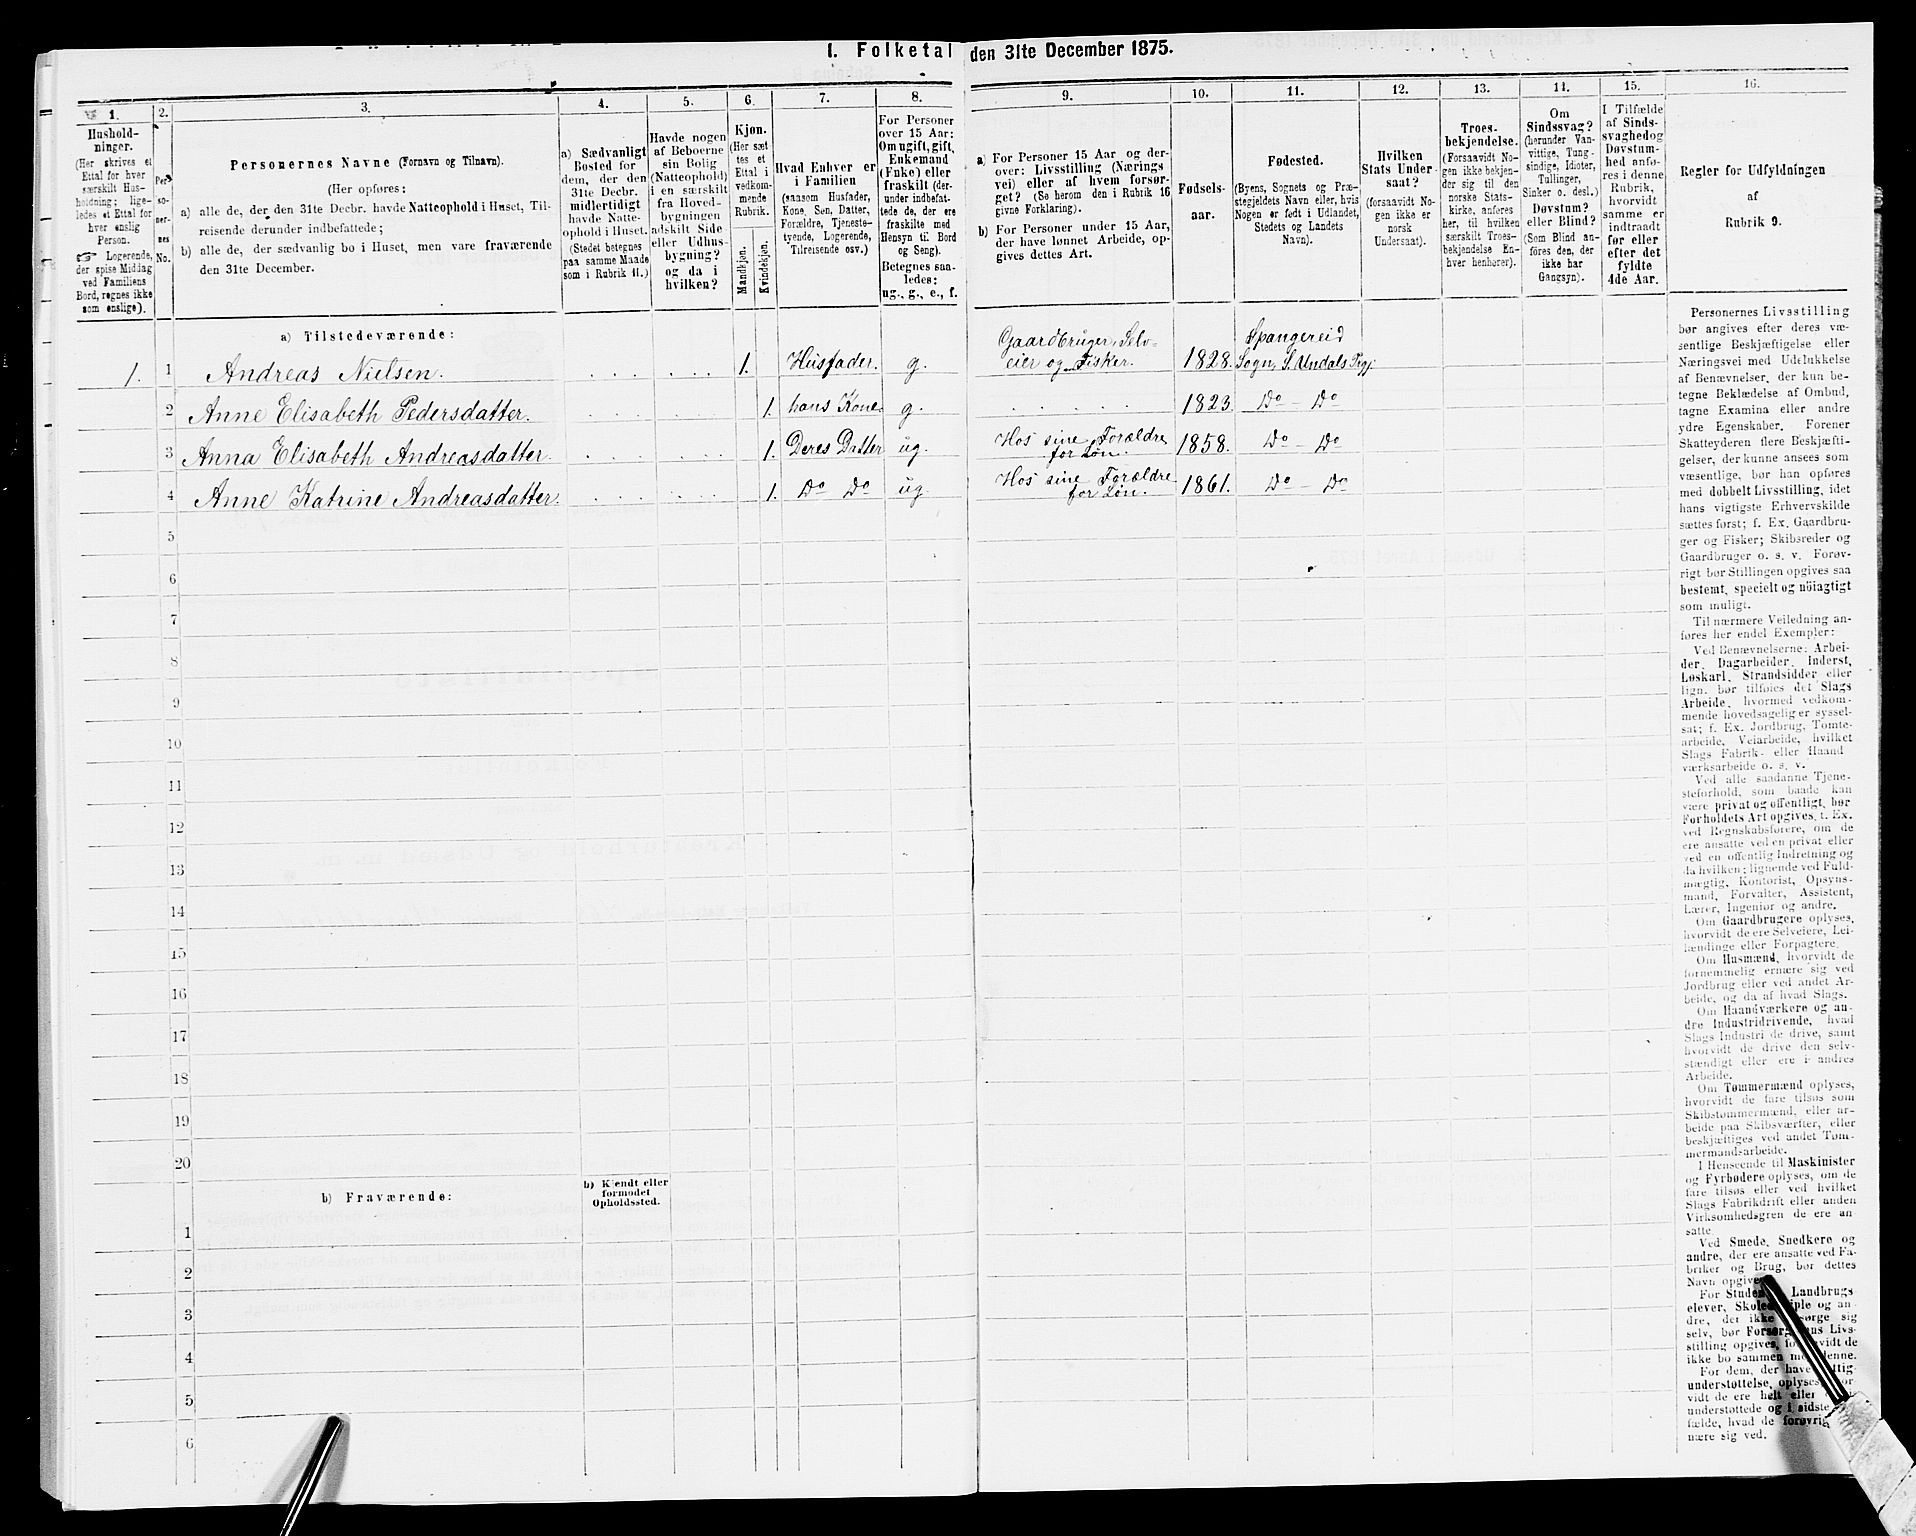 I. Folketal den 31te December 1875.
1.
Hushold-
ninger.
(Her skrives et
Ettal for hver
særskilt Hus-
holdning; lige-
ledes et Ettal for
hver enslig
Person.
Logerende,
der spise Middag
ved Familiens
Bord, regnes ikke
som enslige).
2.
Per-
so-
ner-
nes
No.
3.
Personernes Navne (Fornavn og Tilnavn).
(Her opføres:
a) alle de, der den 31te Decbr. havde Natteophold i Huset, Til-
reisende derunder indbefattede;
b) alle de, der sædvanlig bo i Huset, men vare fraværende
den 31te December.
4.
a) Sædvanligt
Bosted for
dem, der den
31te Decbr.
midlertidigt
havde Natte-
ophold i Huset.
(Stedet betegnes
paa samme Maade
som i Rubrik 11.)
5.
Havde nogen
af Beboerne
sin Bolig
(Natteophold)
i en særskilt
fra Hoved-
bygningen
adskilt Side
eller Udhus-
bygning?
og da i
hvilken?
6.
Kjøn.
(Her sæt
tes et
Ettal i
vedkom-
mende
Rubrik.
Mandkjøn.
Kvindekjøn.
7.
Hvad Enhver er
i Familien
(saasom Husfader,
Kone, Søn, Datter,
Forældre, Tjeneste-
tyende, Logerende,
Tilreisende osv.)
8.
For Personer
over 15 Aar:
Om ugift, gift,
Enkemand
(Enke) eller
fraskilt (der-
under indbefat-
tede de, der ere
fraskilte med
Hensyn til Bord
og Seng).
Betegnes saa-
ledes:
ug., g., e., f.
9.
a) For Personer 15 Aar og der-
over: Livsstilling (Nærings
vei) eller af hvem forsør-
get? (Se herom den i Rubrik 16
givne Forklaring).
b) For Personer under 15 Aar,
der have lønnet Arbeide, op-
gives dettes Art.
10.
Fødsels-
aar.
11.
Fødested.
(Byens, Sognets og Præ-
stegjeldets Navn eller, hvis
Nogen er født i Udlandet,
Stedets og Landets
Navn).
12.
Hvilken
Stats Under
saat?
(forsaavidt No-
gen ikke er
norsk
Undersaat).
13.
Troes-
bekjendelse.
(Forsaavidt No-
gen ikke bekjen-
der sig til den
norske Stats-
kirke, anføres
her, til hvilken
særskilt Troes-
bekjendelse En-
hver henhører).
14.
Om
Sindssvag?
(herunder Van-
vittige, Tung-
sindige, Idioter,
Tullinger,
Sinker o. desl.)
Døvstum?
eller Blind?
(Som Blind an-
føres den, der
ikke har
Gangsyn).
15.
I Tilfælde
af Sinds-
svaghed og
Døvstum-
hed anfø-
res i denne
Rubrik,
hvorvidt
samme er
indtraadt
før eller
efter det
fyldte
4de Aar.
16.
Regler for Udfyldningen
af
Rubrik 9.
a) Tilstedeværende:
1. 1 Andreas Nielsen. 1. Husfader. g. Gaardbruger, Selv-
eier og Fisker. 1828. Spangereid
Sogn, S. Undals Pgj.
2 Anne Elisabeth Pedersdatter. 1. hans Kone. g. 1823. Do - Do
3 Anna Elisabeth Andreasdatter. 1. Deres Datter ug. Hos sine Forældre
for Løn. 1858. Do - Do
4 Anne Katrine Andreasdatter. 1. Do Do ug. Hos sine Forældre
for Løn. 1861. Do - Do
5
6
7
8
9
10
11
12
13
14
15
16
17
18
19
20
b) Fraværende:
b) Kjendt eller
formodet
Opholdssted.
1
2
3
4
5
6
Personernes Livsstilling
bør angives efter deres væ-
sentlige Beskjæftigelse eller
Næringsvei med Udelukkelse
af Benævnelser, der kun be-
tegne Beklædelse af Ombud,
tagne Examina eller andre
ydre Egenskaber. Forener
Skatteyderen flere Beskjæfti-
gelser, der kunne ansees som
væsentlige, bør han opføres
med dobbelt Livsstilling, idet
hans vigtigste Erhvervskilde
sættes først; f. Ex. Gaardbru-
ger og Fisker; Skibsreder og
Gaardbruger o. s. v. Forøv-
rigt bør Stillingen opgives saa
bestemt, specielt og nöiagtigt
som muligt.
Til nærmere Veiledning an-
føres her endel Exempler:
Ved Benævnelserne: Arbei-
der, Dagarbeider, Inderst,
Løskarl, Strandsidder eller
lign. bør tilføies det Slags
Arbeide, hvormed vedkom-
mende hovedsagelig er syssel-
sat; f. Ex. Jordbrug, Tomte-
arbeide, Veiarbeide, hvilket
Slags Fabrik- eller Haand-
værksarbeide o. s. v.
Ved alle saadanne Tjene-
steforhold, som baade kan
være privat og offentligt, bør
Forholdets Art opgives, f. Ex.
ved Regnskabsførere, om de
ere ansatte ved en privat eller
ved en offentlig Indretning og
da hvilken; lignende ved Fuld-
mægtig, Kontorist, Opsyns-
mand, Forvalter, Assistent,
Lærer, Ingeniør og andre.
Om Gaardbrugere oplyses,
hvorvidt de ere Selveiere, Lei-
lændinge eller Forpagtere.
Om Husmænd, hvorvidt de
fornemmelig ernære sig ved
Jordbrug eller ved andet Ar-
beide, og da af hvad Slags.
Om Haandværkere og an-
dre Industridrivende, hvad
Slags Industri de drive, samt
hvorvidt de drive den selv-
stændigt eller ere i andres
Arbeide.
Om Tømmermænd oplyses,
hvorvidt de fare tilsøs som
Skibstømmermænd, eller ar-
beide paa Skibsværfter, eller
beskjæftiges ved andet Tøm-
mermandsarbeide.
I Henseende til Maskinister
og Fyrbødere oplyses, om de
fare tilsøs eller ved hvilket
Slags Fabrikdrift eller anden
Virksomhedsgren de ere an-
satte.
Ved Smede, Snedkere og
andre, der ere ansatte ved Fa-
briker og Brug, bør dettes
Navn opgives
For Landbrugs
elever, og an-
dre, der ikke sig
selv, bør Livs-
stilling opgives, de
ikke bo sammen denne.
For dem, der have
understøttelse, oplyses,
vidt de ere helt eller
understøttede og i sidste
fælde, hvad de forøvrigt
nære sig ved.